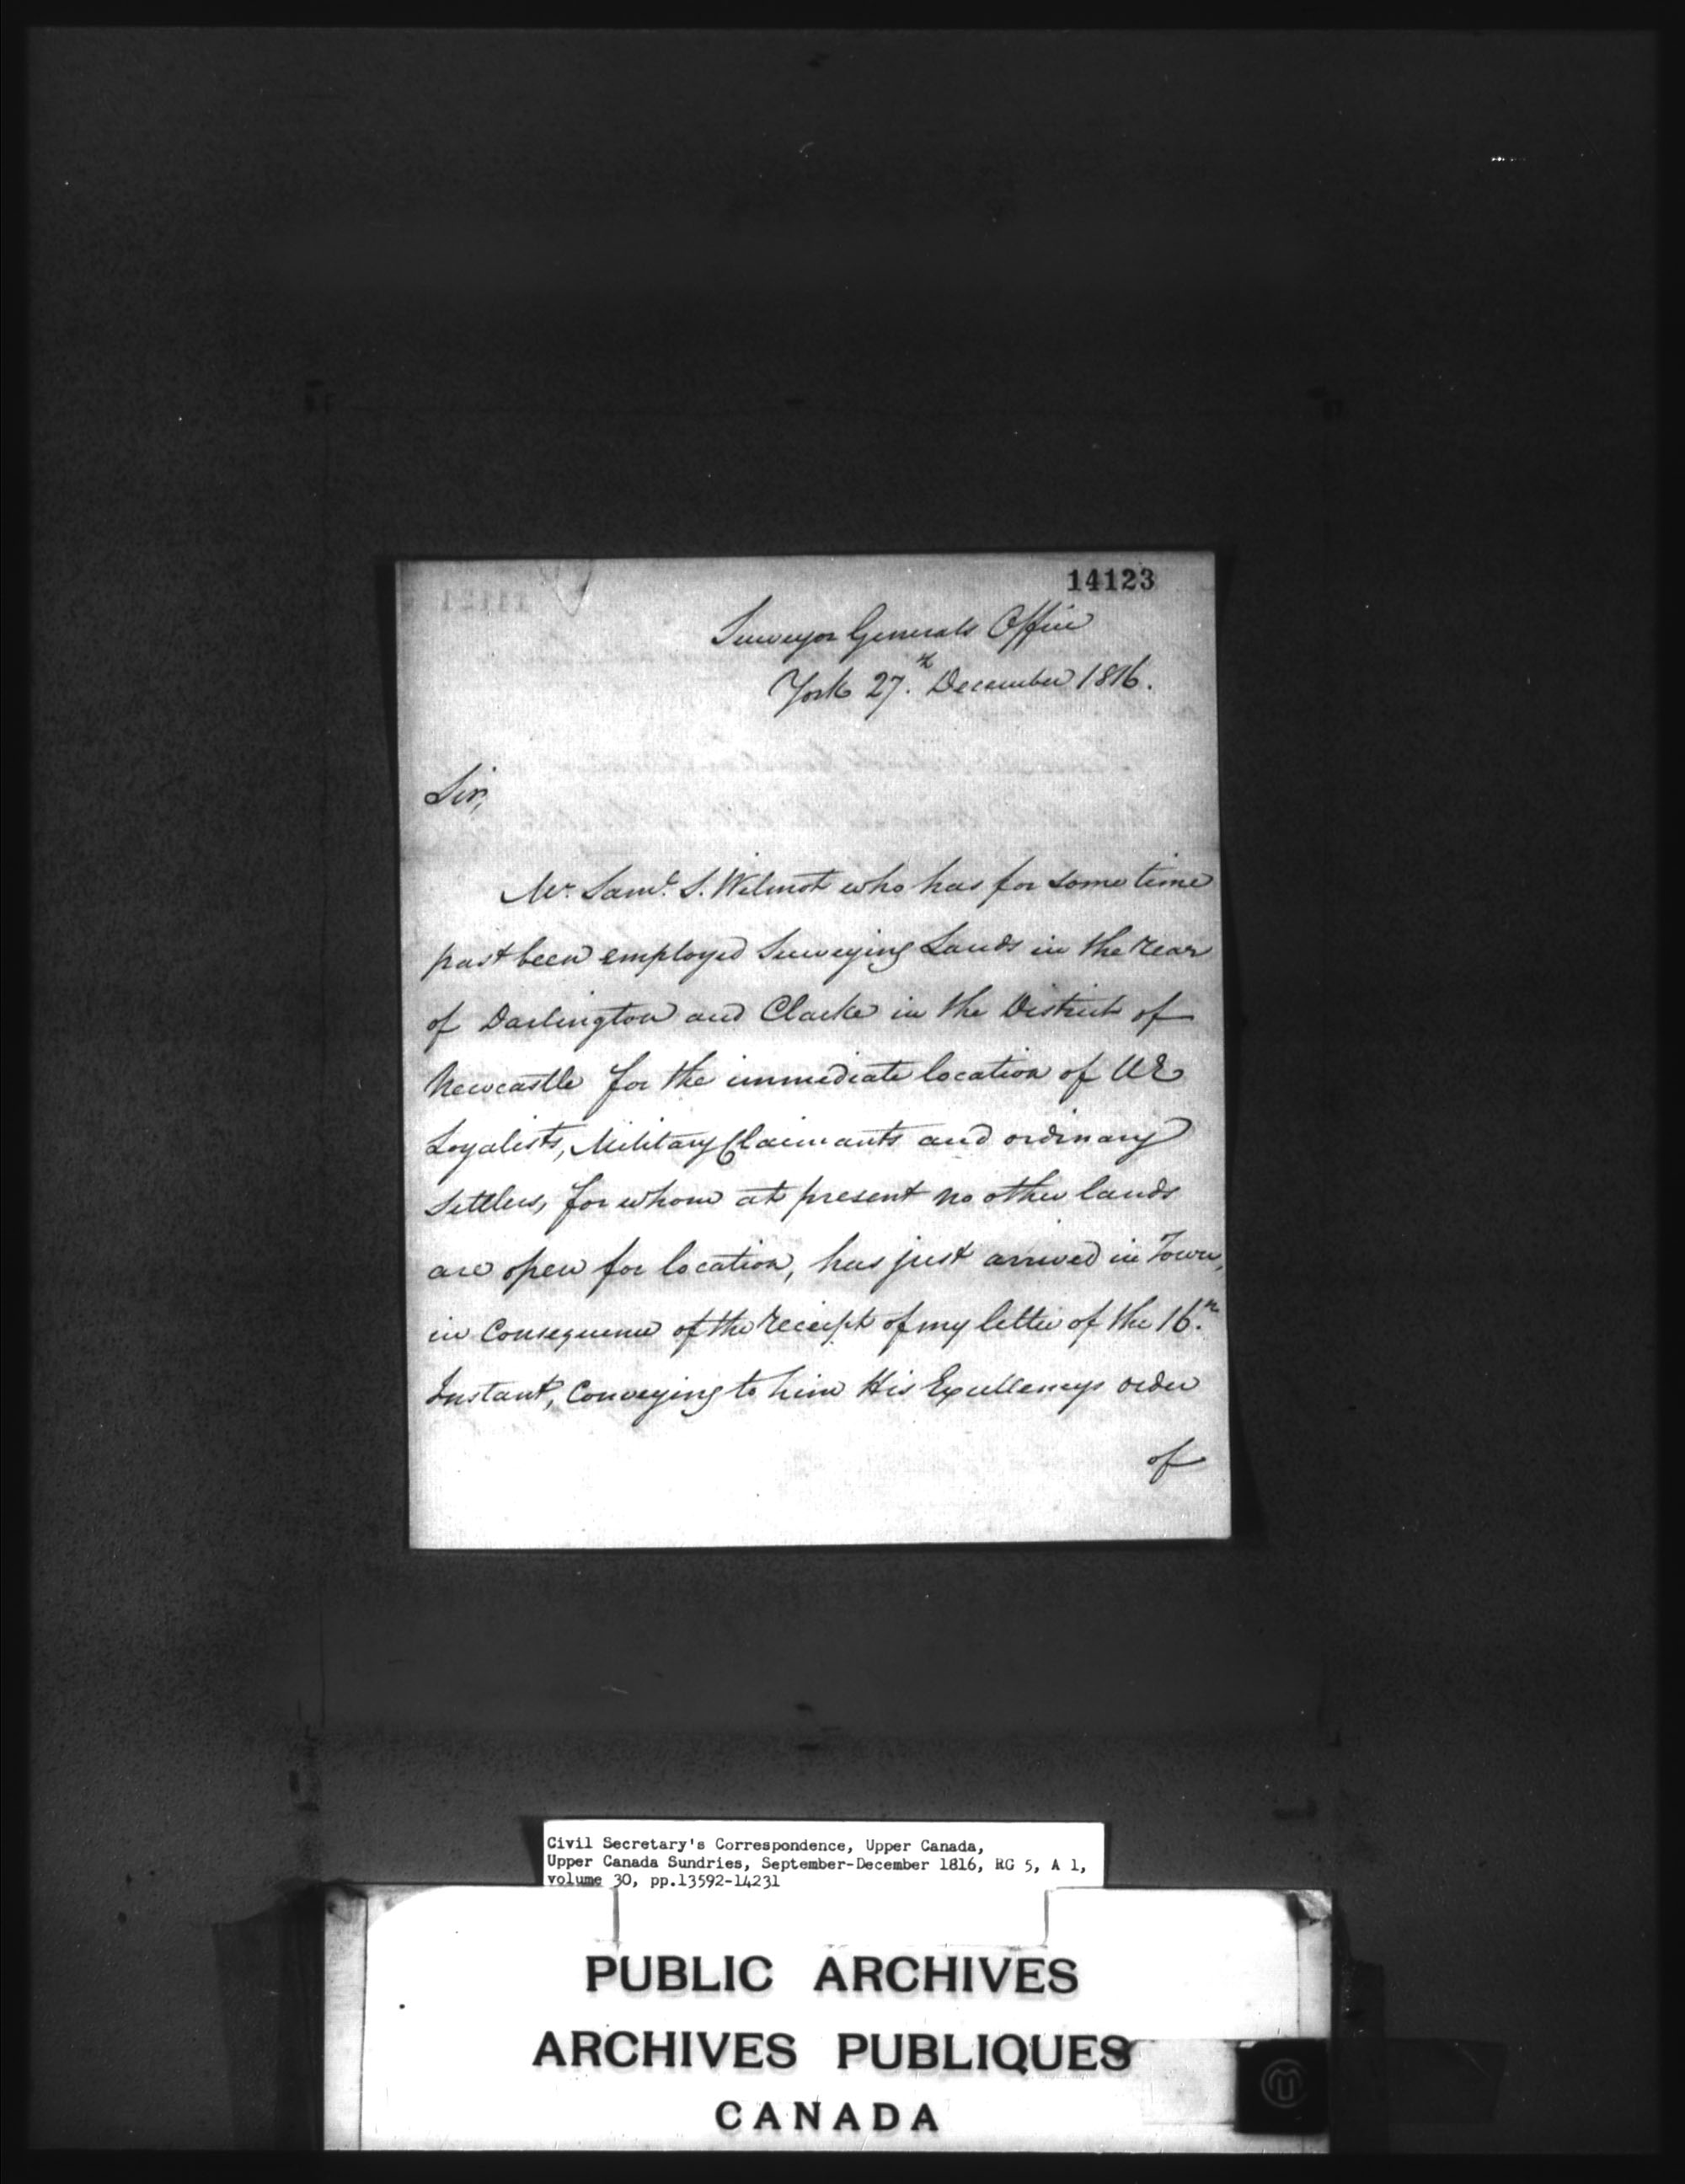 14123
Surveyor Generals Office
York 27.th December 1816.
Sir,
Mr. Saml. S. Wilmot who has for some time
past been employed Surveying Lands in the rear
of Darlington and Clarke in the District of
Newcastle for the immediate location of UE
Loyalists, Military Claimants and ordinary
Settlers, for whom at present no other lands
are open for location, has just arrived in Town,
in Consequence of the receipt of my letter of the 16.th
Instant, Conveying to him His Excellencys order
of
Civil Secretary's Correspondence, Upper Canada,
Upper Canada Sundries, September-December 1816, RG 5, A 1,
volume 30, pp.13592-14231
PUBLIC ARCHIVES
ARCHIVES PUBLIQUES
CANADA